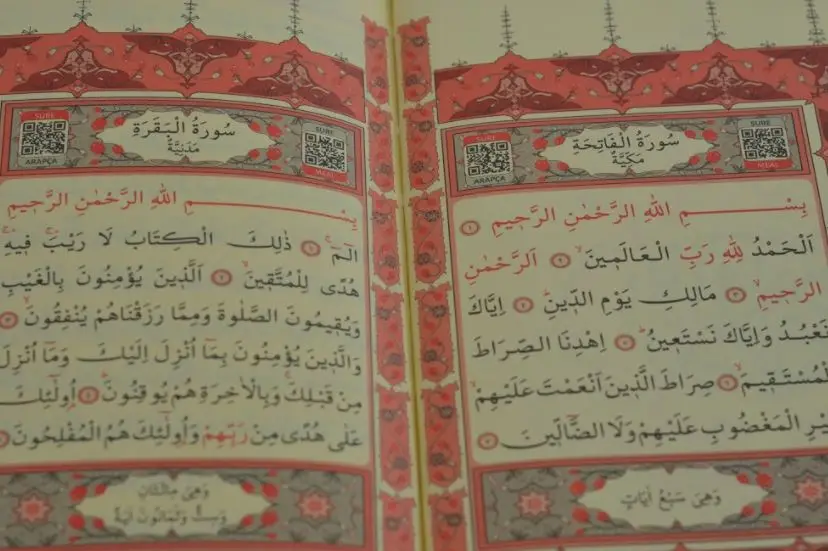 SURE
ARAPÇA
سُورَةُ الْفَاتِحَةِ
مَكِّيَّةٌ
SURE
MEAL
بِسْمِ اللهِ الرَّحْمٰنِ الرَّحٖيمِ ١
اَلْحَمْدُ لِلّٰهِ رَبِّ الْعَالَمٖينَۙ ٢ اَلرَّحْمٰنِ
الرَّحٖيمِۙ ٣ مَالِكِ يَوْمِ الدّٖينِؕ ٤ اِيَّاكَ
نَعْبُدُ وَاِيَّاكَ نَسْتَعٖينُؕ ٥ اِهْدِنَا الصِّرَاطَ
الْمُسْتَقٖيمَۙ ٦ صِرَاطَ الَّذٖينَ اَنْعَمْتَ عَلَيْهِمْۙ
غَيْرِ الْمَغْضُوبِ عَلَيْهِمْ وَلَا الضَّٓالّٖينَ ٧
وَهِيَ سَبْعُ اٰيَاتٍ
SURE
ARAPÇA
سُورَةُ الْبَقَرَةِ
مَدَنِيَّةٌ
SURE
MEAL
بِسْمِ اللهِ الرَّحْمٰنِ الرَّحٖيمِ
الٓمٓۚ ١ ذٰلِكَ الْكِتَابُ لَا رَيْبَۚ فٖيهِۚ
هُدًى لِلْمُتَّقٖينَۙ ٢ اَلَّذٖينَ يُؤْمِنُونَ بِالْغَيْبِ
وَيُقٖيمُونَ الصَّلٰوةَ وَمِمَّا رَزَقْنَاهُمْ يُنْفِقُونَۙ ٣
وَالَّذٖينَ يُؤْمِنُونَ بِمَٓا اُنْزِلَ اِلَيْكَ وَمَٓا اُنْزِلَ
مِنْ قَبْلِكَۚ وَبِالْاٰخِرَةِ هُمْ يُوقِنُونَؕ ٤ اُو۬لٰٓئِكَ
عَلٰى هُدًى مِنْ رَبِّهِمْ وَاُو۬لٰٓئِكَ هُمُ الْمُفْلِحُونَ ٥
وَهِيَ مِائَتَانِ
وَسِتٌّ وَثَمَانُونَ اٰيَةً